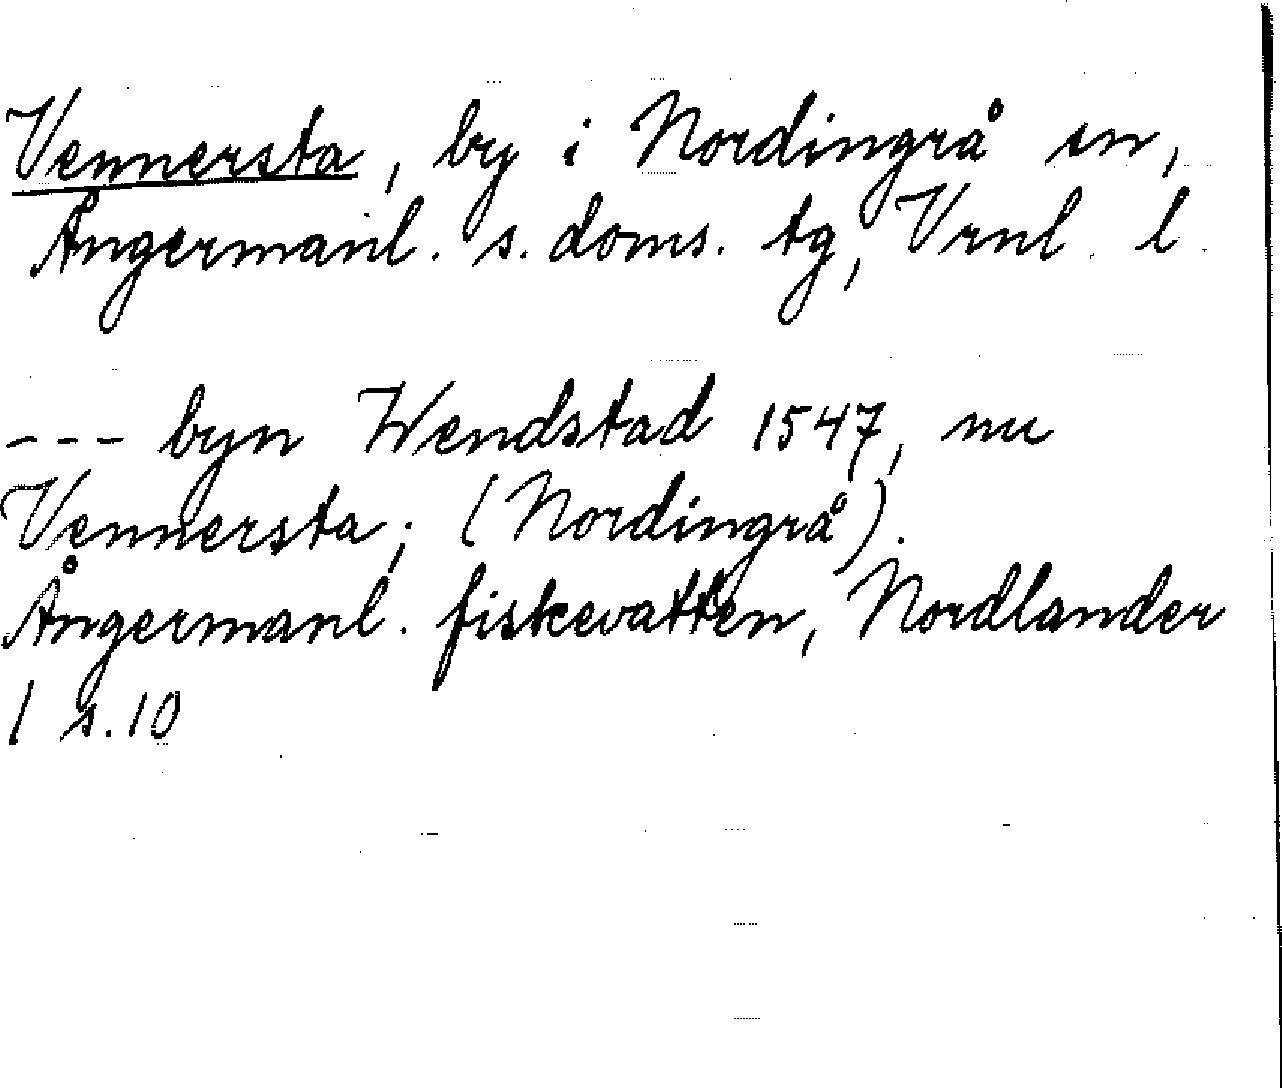 Vennersta, by i Nordingrå sn,
Ångermanl. s. doms. tg, Vrnl. l.
--- byn Wendstad 1547, nu
Vennersta; (Nordingrå).
Ångermanl. fiskevatten, Nordlander
I s. 10